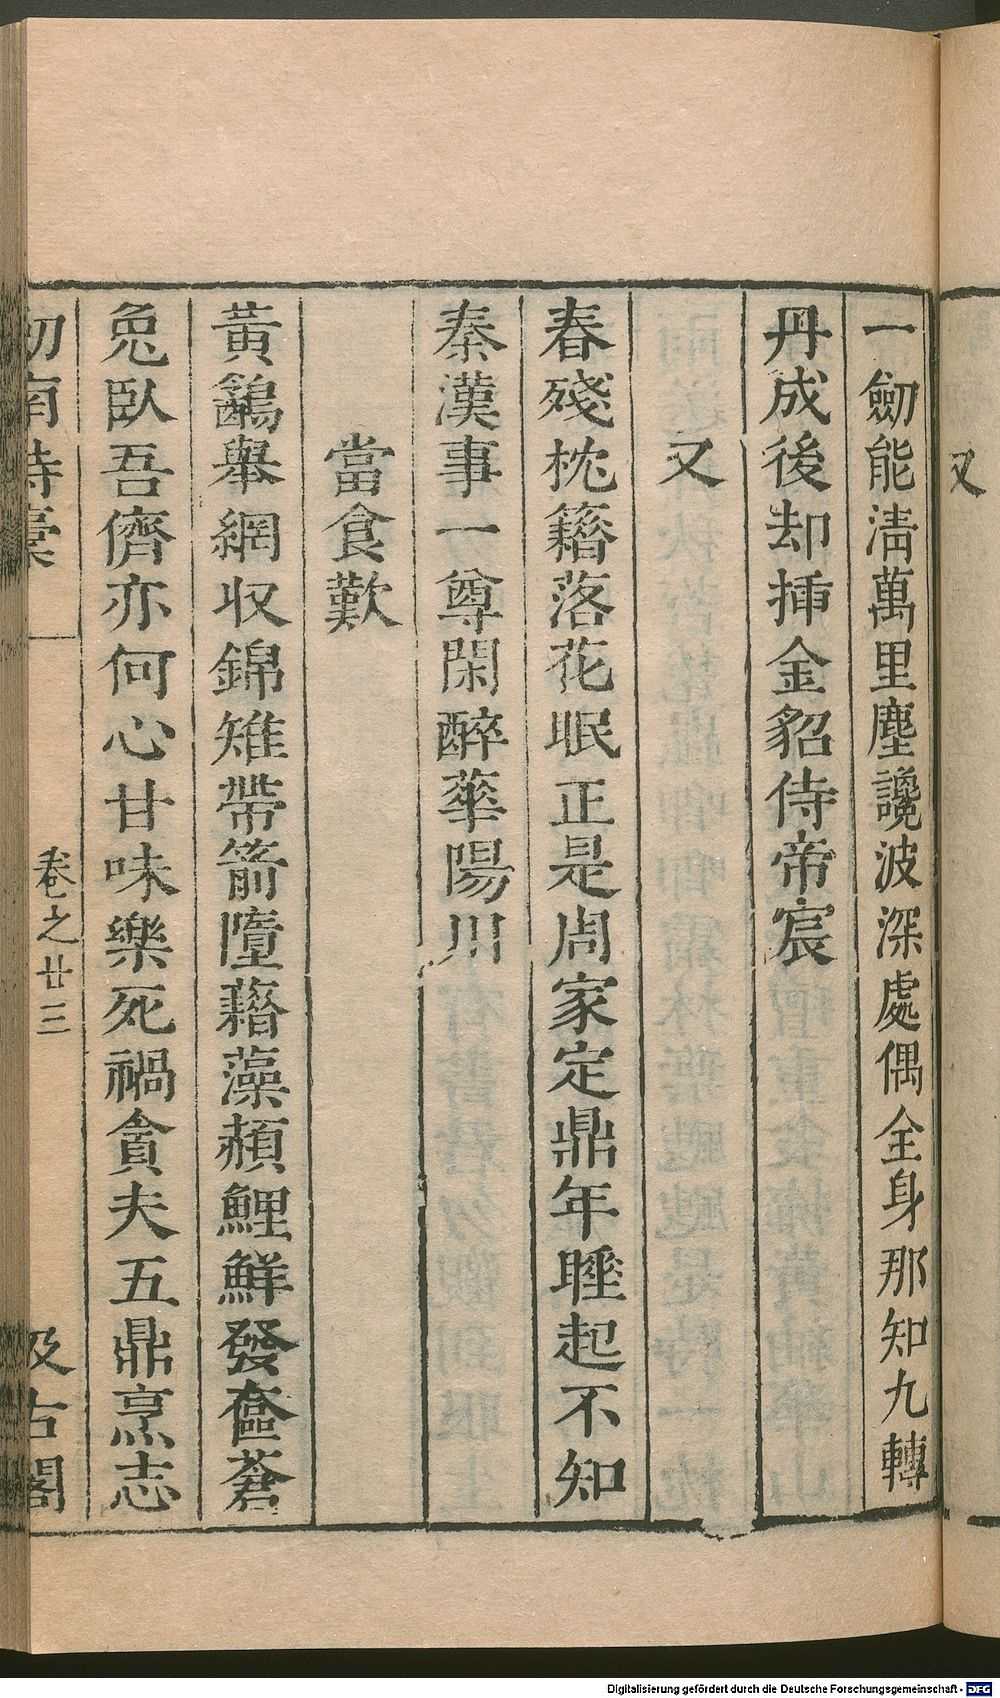 又
一劒能淸萬里塵讒波深處偶全身那知九轉
丹成後却揷金貂侍帝宸
又
春殘枕籍落花眠正是周家定鼎年睡起不知
秦漢事一尊閑醉華陽川
當食歎
黃鷁舉網收錦雉帶箭墮藉藻頳鯉鮮發奩蒼
兔臥吾儕亦何心甘味樂死禍貪夫五鼎烹志
劒南詩稾
卷之廿三
汲古閣
Digitalisierung gefördert durch die Deutsche Forschungsgemeinschaft - DFG